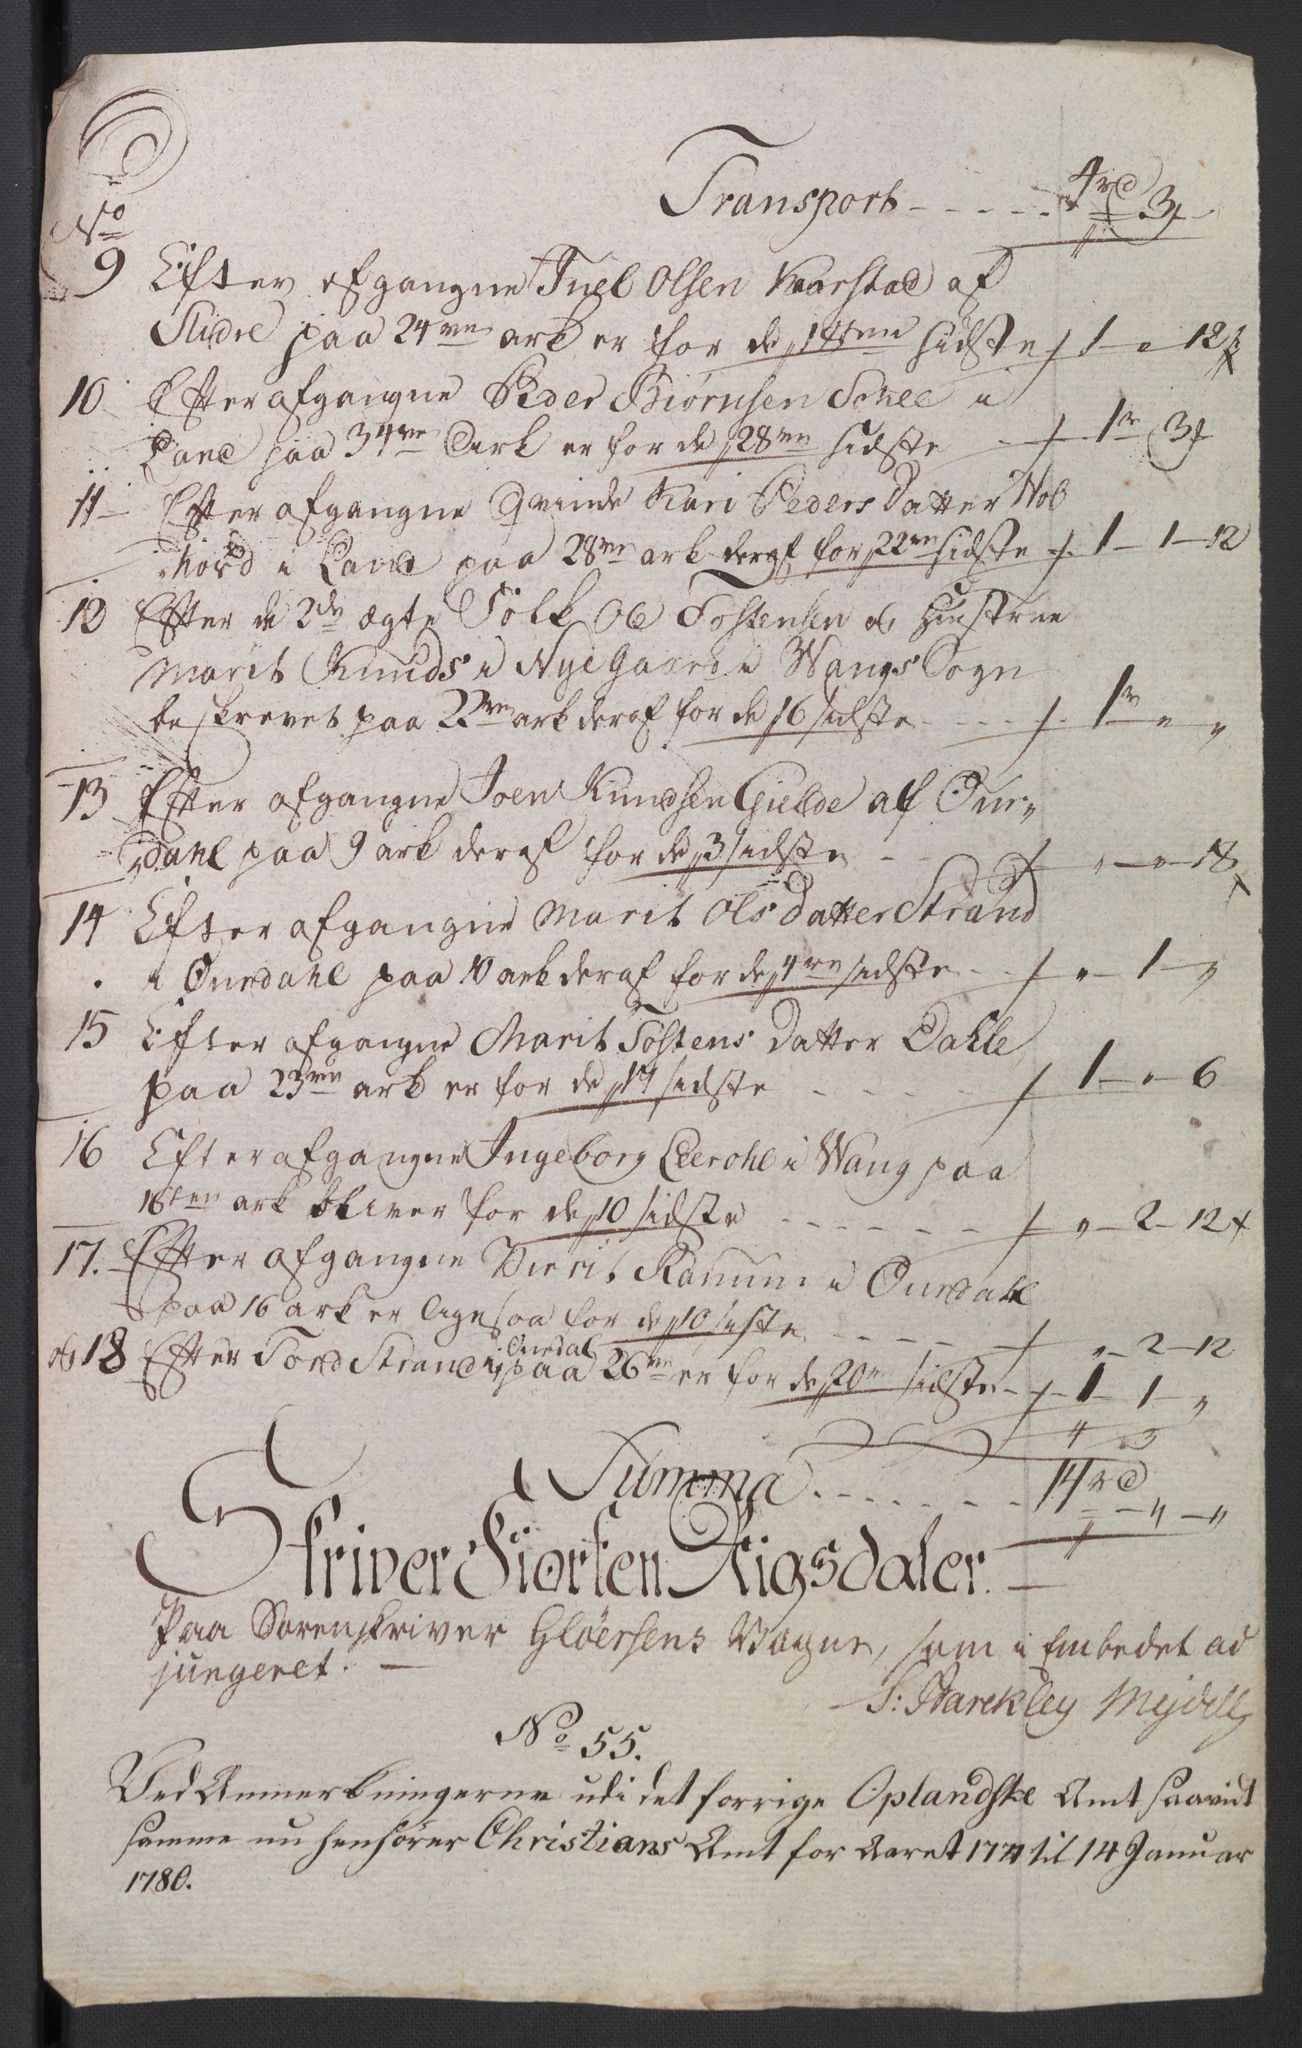 Transport - - - - - 4 rd 3
No
9 Efter afgangne Juel Olsen Kaarstad af
Slidre paa 24de ark er for de 18 sidste 1 - „ - 12
10 Efter afgangne Peder Biørnsen Schee i
Land paa 34de Ark er for de 28 sidste 1 - 3
11 Efter afgangne Qvinde Kari Peders Datter Hol
i Land paa 28de ark deraf for 22 sidste 1 - 1 - 12
12 Efter de 2de ægte Folk Ole Tostensen og Hustrue
Marit Knuds i Nye Gaard i Wangs Sogn
beskrevet paa 22de ark deraf for de 16 sidste - - - 1 „ „
13 Efter afgangne Joen Knudsen Gielde af Our-
dahl paa 9 ark deraf for de 3 sidste - „ - „ - 18
14 Efter afgangne Marit Ols Datter Strand
i Ourdahl paa 10 ark deraf for de 4 sidste - - „ - 1 - „
15 Efter afgangne Marit Tostens Datter Dahle
paa 23de ark er for de 17 sidste - - - - 1 - „ - 6
16 Efter afgangne Ingeborg Leerohl i Wang paa
16ten ark bliver for de 10 sidste - - - - - „ - 2 - 12
17. Efter afgangne Birit Ranum i Ourdahl
paa 16 ark er ligesaa for de 10 siste - - - - „ - 2 - 12
og 18 Efter Tord Strand i Ourdal paa 26de er for de 20 sidste - 1 - 1 - „
4 3
Summa. - - - - - - 14 rd „ - „ - „
Skriver Fiorten Rigsdaler. -
Paa Sorenskriver Gløersens Vegne, som i Embedet ad
jungeret. -
S: Barckley Mejdell
No 55.
Ved Anmerkningerne udi det forrige Oplandske Amt saavidt
samme nu henhører Christians Amt for Aaret 1771 til 14 Januar
1780.